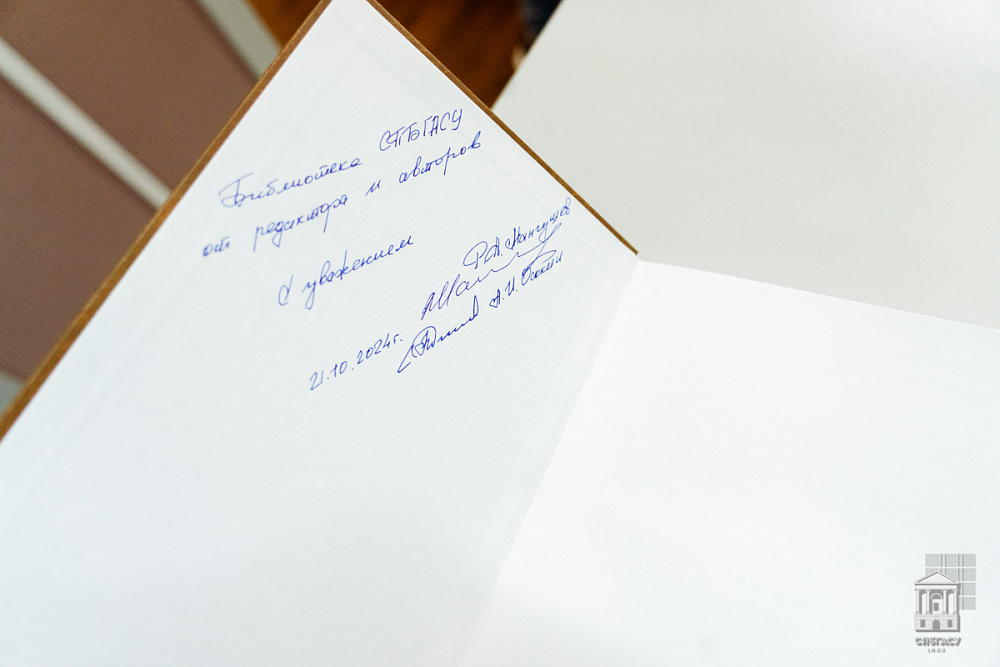 Библиотека СПбГАСУ
от редактора и авторов
С уважением
Р.А. Мангушев
А.И. Осокин
21.10.2024г.
СПбГАСУ
1832